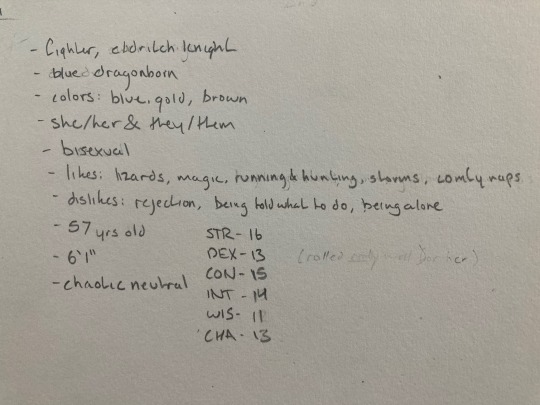 - fighter, eldritch knight
- blue dragonborn
- colors: blue, gold, brown
- she/her & they/them
- bisexual
- likes: lizards, magic, running & hunting, storms, comfy naps
- dislikes: rejection, being told what to do, being alone
- 57 yrs old
- 6'1"
- chaotic neutral
STR - 16
DEX - 13 (rolled really well for her)
CON - 15
INT - 14
WIS - 11
CHA - 13